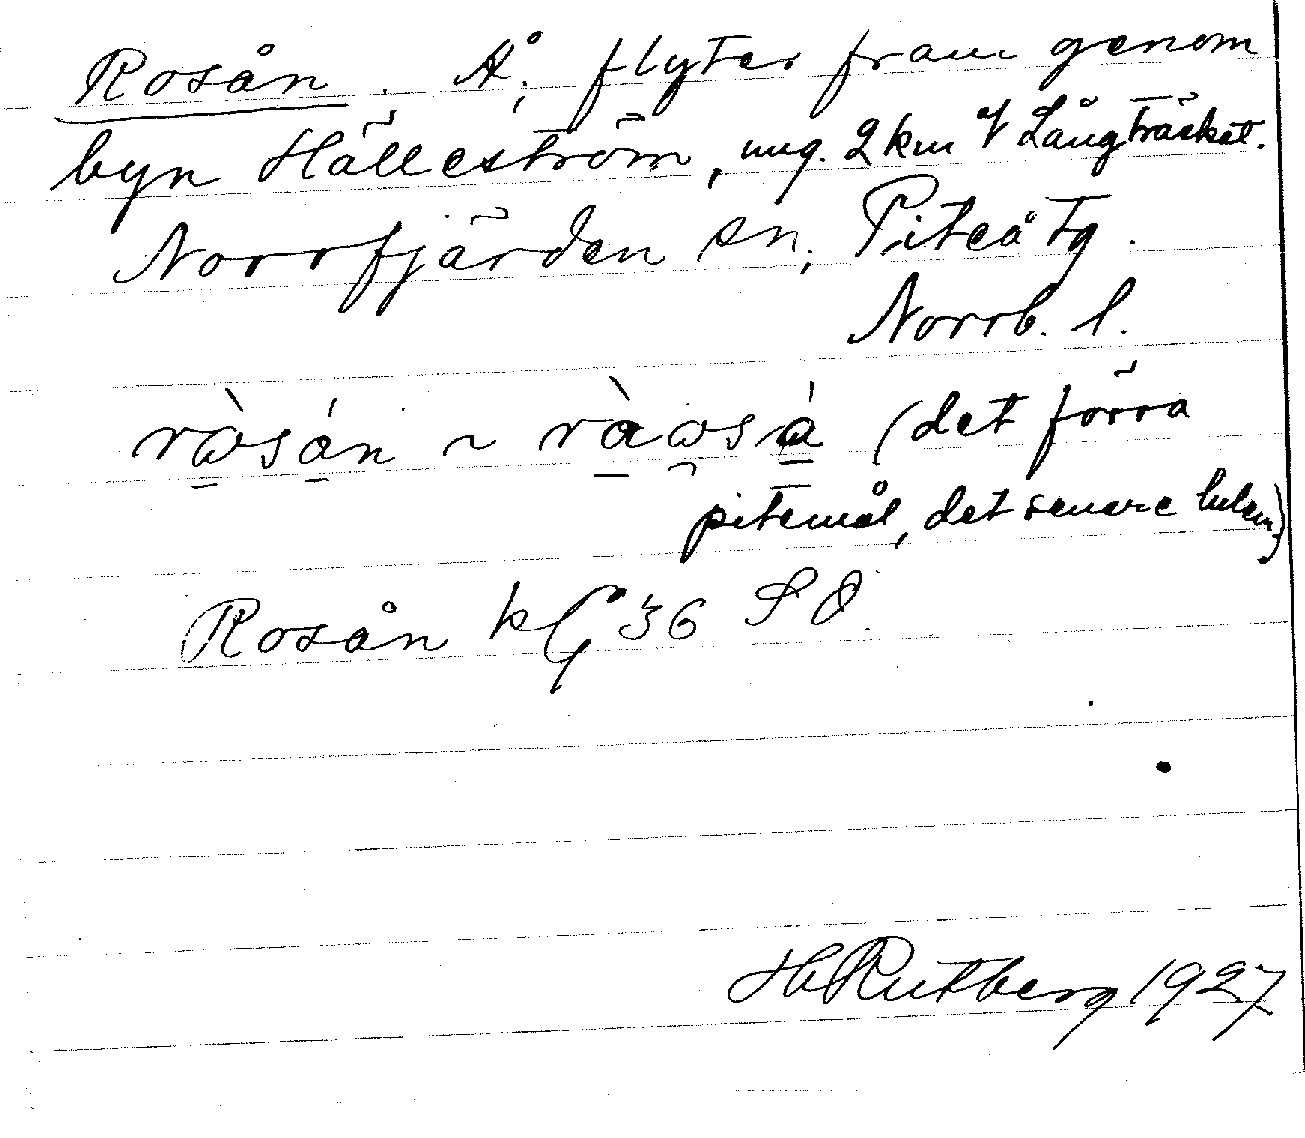 Rosån. Å, flyter fram genom
byn Hälleström, ung. 2 km V Långträsket.
Norrfjärden sn, Piteå tg.
Norrb. l.
~ (det förra
pitemål, det senare lulem)
Rosån kG 36 SO
HRutberg 1927